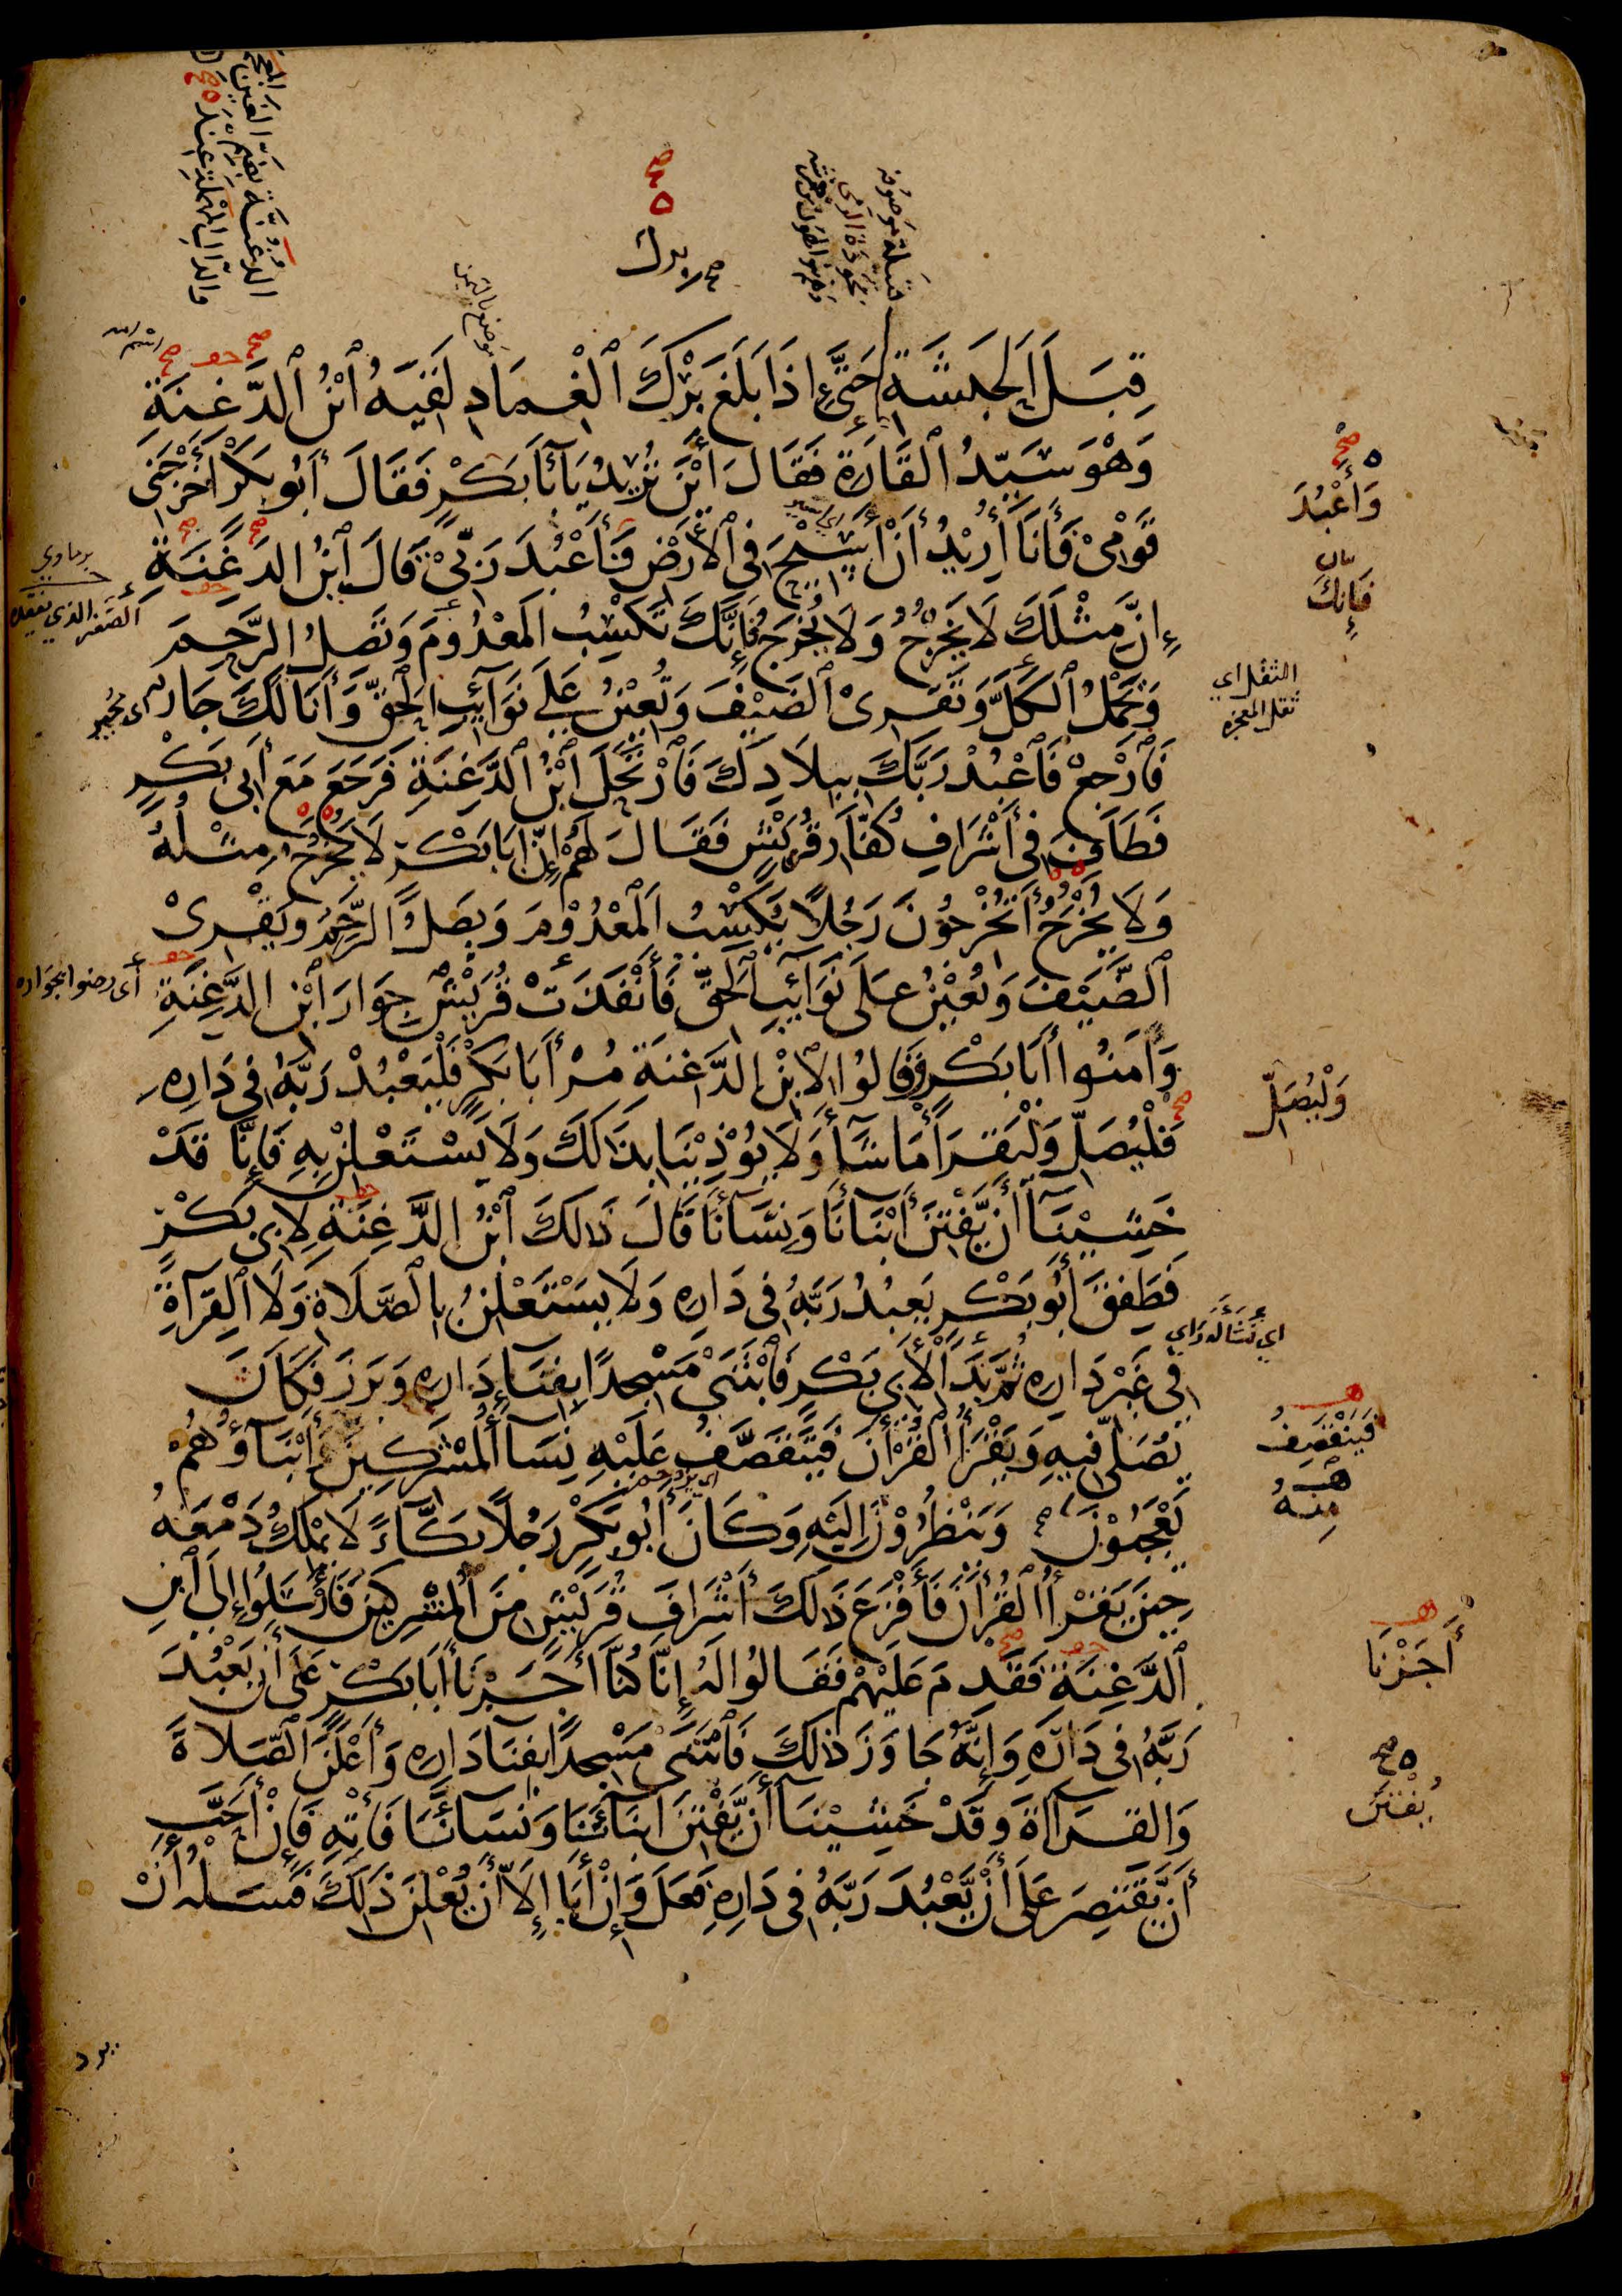 الدغنة بضم الغين المعجـ
والدال المهملة عند
برك
قبيلة موصوفة
بجودة الرمى
موضع باليمن
قِبَلَ الْحَبَشَةِ حَتَّى إِذَا بَلَغَ بَرْكَ الْغِمَادِ لَقِيَهُ ابْنُ الدَّغِنَةِ
وَهْوَ سَيِّدُ الْقَارَةِ فَقَالَ أَيْنَ تُرِيدُ يَا أَبَا بَكْرٍ فَقَالَ أَبُو بَكْرٍ أَخْرَجَنِي
وَأَعْبُدَ
قَوْمِيْ فَأَنَا أُرِيْدُ أَنْ أَسِيْحَ فِي الْأَرْضِ فَأَعْبُدَ رَبِّيْ قَالَ ابْنُ الدَّغِنَةِ
اي اسير
برماوي
فَإِنَّكَ
إِنَّ مِثْلَكَ لَا يَخْرُجُ وَلَا يُخْرَجُ فَإِنَّكَ تَكْسِبُ الْمَعْدُومَ وَتَصِلُ الرَّحِمَ
الثقل اي
ثقل العجزه
وَتَحْمِلُ الْكَلَّ وَتَقْرِىْ الضَّيْفَ وَتُعِيْنُ عَلَى نَوَائِبِ الْحَقِّ وَأَنَا لَكَ جَارٌ
اى مجير
فَارْجِعْ فَاعْبُدْ رَبَّكَ بِبِلَادِكَ فَارْتَحَلَ ابْنُ الدَّغِنَةِ فَرَجَعَ مَعَ أَبِي بَكْرٍ
فَطَافَ فِي أَشْرَافِ كُفَّارِ قُرَيْشٍ فَقَالَ لَهُمْ إِنَّ أَبَا بَكْرٍ لَا يَخْرُجُ مِثْلُهُ
وَلَا يُخْرَجُ أَتُخْرِجُونَ رَجُلًا يُكْسِبُ الْمَعْدُوْمَ وَيَصِلُ الرَّحِمَ وَيَقْرِىْ
الضَّيْفَ وَيُعِيْنُ عَلَى نَوَائِبِ الْحَقِّ فَأَنْفَذَتْ قُرَيْشٌ جِوَارَ ابْنِ الدَّغِنَةِ
أى رضوا بجواره
وَآمَنُوا أَبَا بَكْرٍ وَقَالُوا لِابْنِ الدَّغِنَةِ مُرْ أَبَا بَكْرٍ فَلْيَعْبُدْ رَبَّهُ فِي دَارِهِ
وَلْيُصَلِّ
فَلْيُصَلِّ وَلْيَقْرَأْ مَا شَاءَ وَلَا يُؤْذِيْنَا بِذَالِكَ وَلَا يَسْتَعْلِنْ بِهِ فَإِنَّا قَدْ
خَشِيْنَا أَنْ يَفْتِنَ أَبْنَاءَنَا وَنِسَاءَنَا قَالَ ذَالِكَ ابْنُ الدَّغِنَةِ لِأَبِي بَكْرٍ
فَطَفِقَ أَبُو بَكْرٍ يَعْبُدُ رَبَّهُ فِي دَارِهِ وَلَا يَسْتَعْلِنُ بِالصَّلَاةِ وَلَا الْقِرَاءَةِ
اي نشأ له راي
فِي غَيْرِ دَارِهِ ثُمَّ بَدَا لِأَبِي بَكْرٍ فَابْتَنَى مَسْجِدًا بِفِنَاءِ دَارِهِ وَبَرَزَ فَكَانَ
فَيَنْقَصِفُ
يُصَلِّي فِيهِ وَيَقْرَأُ الْقُرْآنَ فَيَتَقَصَّفُ عَلَيْهِ نِسَاءُ الْمُشْرِكِينَ وَأَبْنَاؤُهُمْ
مِنْهُ
يَعْجَبُوْنَ وَيَنْظُرُوْنَ إِلَيْهِ وَكَانَ أَبُو بَكْرٍ رَجُلًا بَكَّاءً لَا يَمْلِكُ دَمْعَهُ
حِينَ يَقْرَأُ الْقُرْآنَ فَأَفْزَعَ ذَالِكَ أَشْرَافَ قُرَيْشٍ مِنَ الْمُشْرِكِينَ فَأَرْسَلُوا إِلَى ابْنِ
أَجَزْنَا
الدَّغِنَةِ فَقَدِمَ عَلَيْهِمْ فَقَالُوا لَهُ إِنَّا كُنَّا أَجَرْنَا أَبَا بَكْرٍ عَلَى أَنْ يَعْبُدَ
رَبَّهُ فِي دَارِهِ وَإِنَّهُ جَاوَزَ ذَالِكَ فَابْتَنَى مَسْجِدًا بِفِنَاءِ دَارِهِ وَأَعْلَنَ الصَّلَاةَ
يُفْتَتَنَ
وَالْقِرَاءَةَ وَقَدْ خَشِيْنَا أَنْ يَفْتِنَ أَبْنَاءَنَا وَنِسَاءَنَا فَأْتِهِ فَإِنْ أَحَبَّ
أَنْ يَقْتَصِرَ عَلَى أَنْ يَعْبُدَ رَبَّهُ فِي دَارِهِ فَعَلَ وَإِنْ أَبَا إِلَّا أَنْ يُعْلِنَ ذَالِكَ فَسَلْهُ أَنْ
يرد